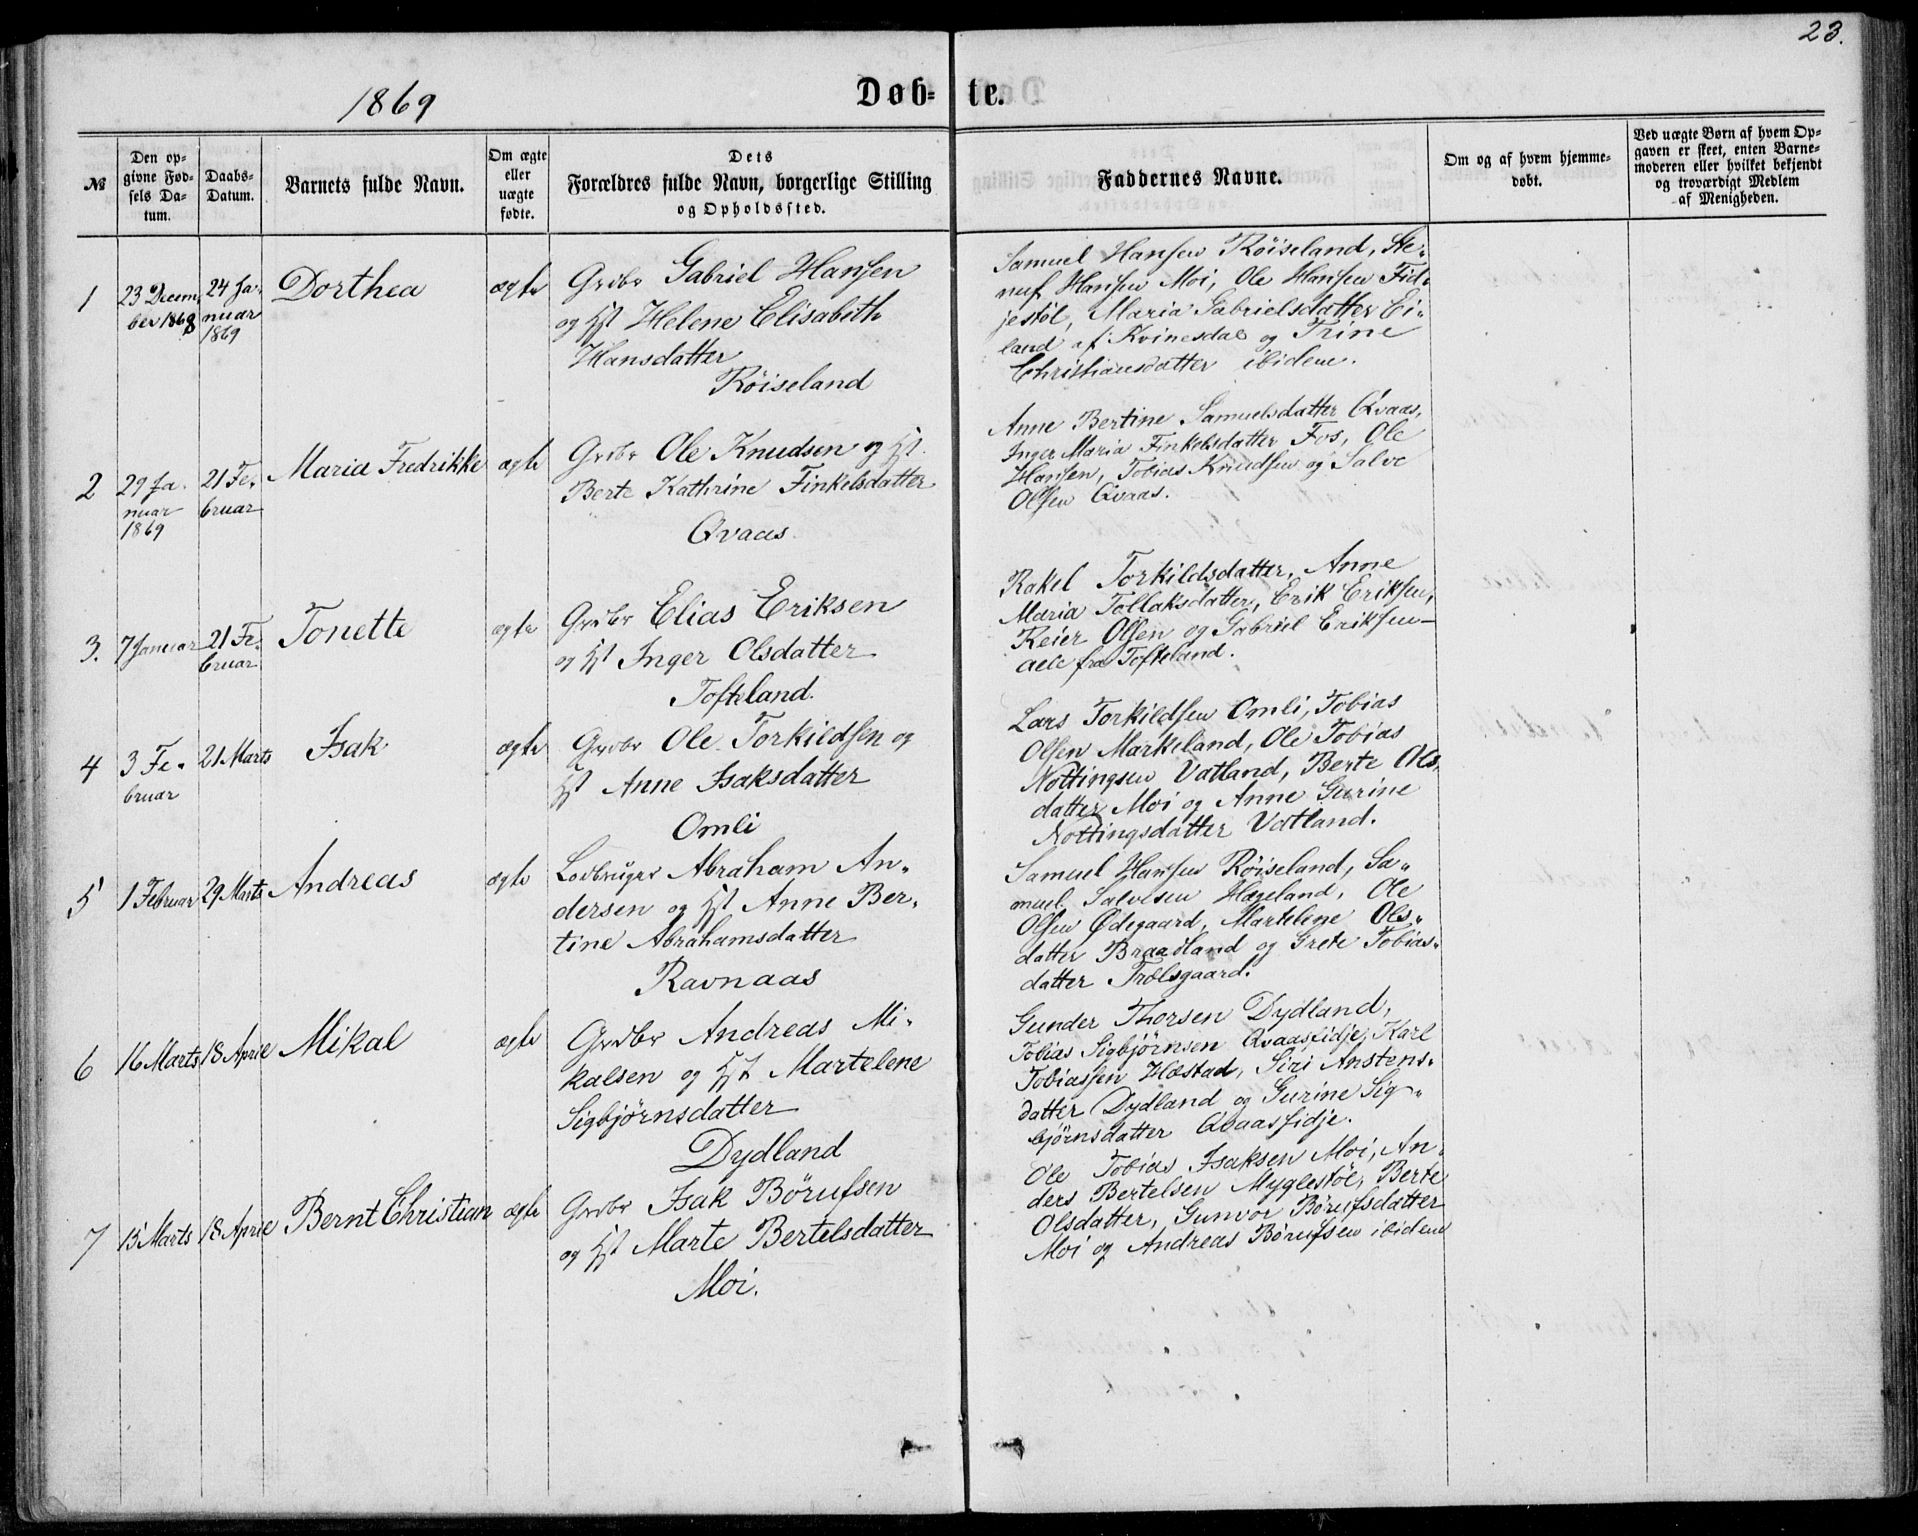 23.
1869
Døb-
te.
№
Den op-
givne Fød-
sels Da-
tum.
Daabs-
Datum.
Barnets fulde Navn.
Om ægte
eller
uægte
fødte.
Dets
Forældres fulde Navn, borgerlige Stilling
og Opholdssted.
Faddernes Navne.
Om og af hvem hjemme-
døbt.
Ved uægte Børn af hvem Op-
gaven er skeet, enten Barne-
moderen eller hvilket bekjendt
og troværdigt Medlem
af Menigheden.
1
23 Decem
ber 1868
24 Ja-
nuar
1869
Dorthea
ægte
Grdbr Gabriel Hansen
og Hst Helene Elisabeth
Hansdatter
Røiseland
Samuel Hansen Røiseland, Ste-
nuf Hansen Moi, Ole Hansen Fid-
jestøl, Maria Gabrielsdatter Ei-
land af Kvinesdal og Trine
Christiansdatter ibidem.
2
29 Ja-
nuar
1869
21 Fe-
bruar
Maria Fredrikke
ægte
Grdbr Ole Knudsen og Hst.
Berte Kathrine Finkelsdatter
Qvaas
Anne Bertine Samuelsdatter Qvaas,
Inger Maria Finkelsdatter Fos, Ole
Hansen, Tobias Knudsen og Salve
Olsen Qvaas.
3.
7 Januar
21 Fe-
bruar
Tonette
ægte
Grdbr Elias Eriksen
og Hst Inger Olsdatter
Tofteland.
Rakel Torkildsdatter, Anne
Maria Tollaksdatter, Erik Eriksen,
Reier Olsen og Gabriel Eriksen-
alle fra Tofteland.
4
3 Fe-
bruar
21 Marts
Isak
ægte
Grdbr Ole Torkildsen og
Hst Anne Isaksdatter
Omli
Lars Torkildsen Omli, Tobias
Olsen Markeland, Ole Tobias
Nottingsen Vatland, Berte Ols-
datter Moi og Anne Gurine
Nottingsdatter Vatland.
5
1 Februar
29 Marts
Andreas
ægte
Lodbruger Abraham An-
dersen og Hst Anne Ber-
tine Abrahamsdatter
Ravnaas
Samuel Hansen Røiseland, Sa-
muel Salvesen Hægeland, Ole
Olsen Ødegaard, Martelene Ols-
datter Braadland og Grete Tobias-
datter Trælsgaard.
6
16 Marts
18 April
Mikal
ægte
Grdbr Andreas Mi-
kalsen og Hst Martelene
Sigbjørnsdatter
Dydland
Gunder Thorsen Dydland,
Tobias Sigbjørnsen Qvaasfidje, Karl
Tobiassen Hæstad, Siri Anstens-
datter Dydland og Gurine Sig-
bjørnsdatter Qvaasfidje.
7
15 Marts
18 April
Bernt Christian
ægte
Grdbr Isak Børufsen
og Hst Marte Bertelsdatter
Moi.
Ole Tobias Isaksen Moi, An-
ders Bertelsen Myglestøl, Berte
Olsdatter, Gunvor Børufsdatter
Moi og Andreas Børufsen ibidem